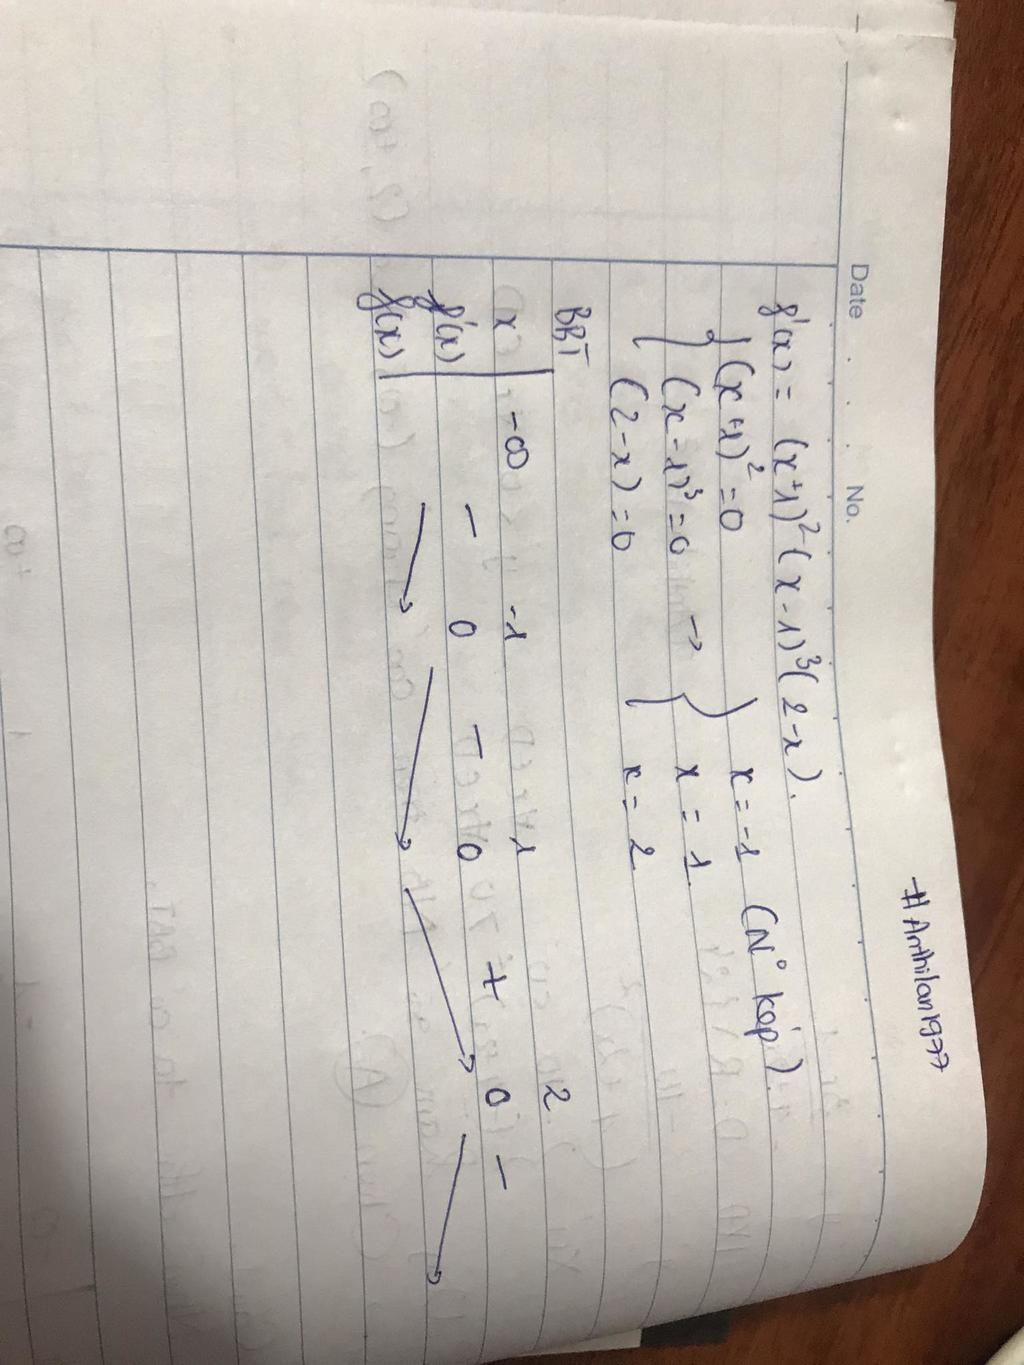 #Anthilan1977
Date . . . No.
f'(x) = (x+1)²(x-1)³(2-x).
(x+1)² = 0 x = -1 (N° kép).
(x-1)³ = 0 → x = 1
(2-x) = 0 x = 2
BBT
x -∞ -1 1 2
f'(x) - 0 - 0 + 0 -
f(x)